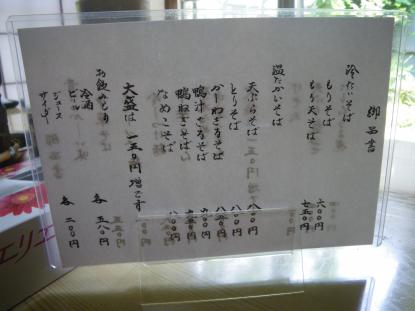 御品書
冷たいそば
もりそば 六〇〇円
もり天そば 七五〇円
温たかいそば
天ぷらそば 八〇〇円
とりそば 八〇〇円
かしわざるそば 八五〇円
鴨汁そば
鴨せいろそば
なめこそば 八〇〇円
大盛は一五〇円増です
お飲みもの
冷酒
ビール 各 五八〇円
ジュース
サイダー 各 二〇〇円
エリエ